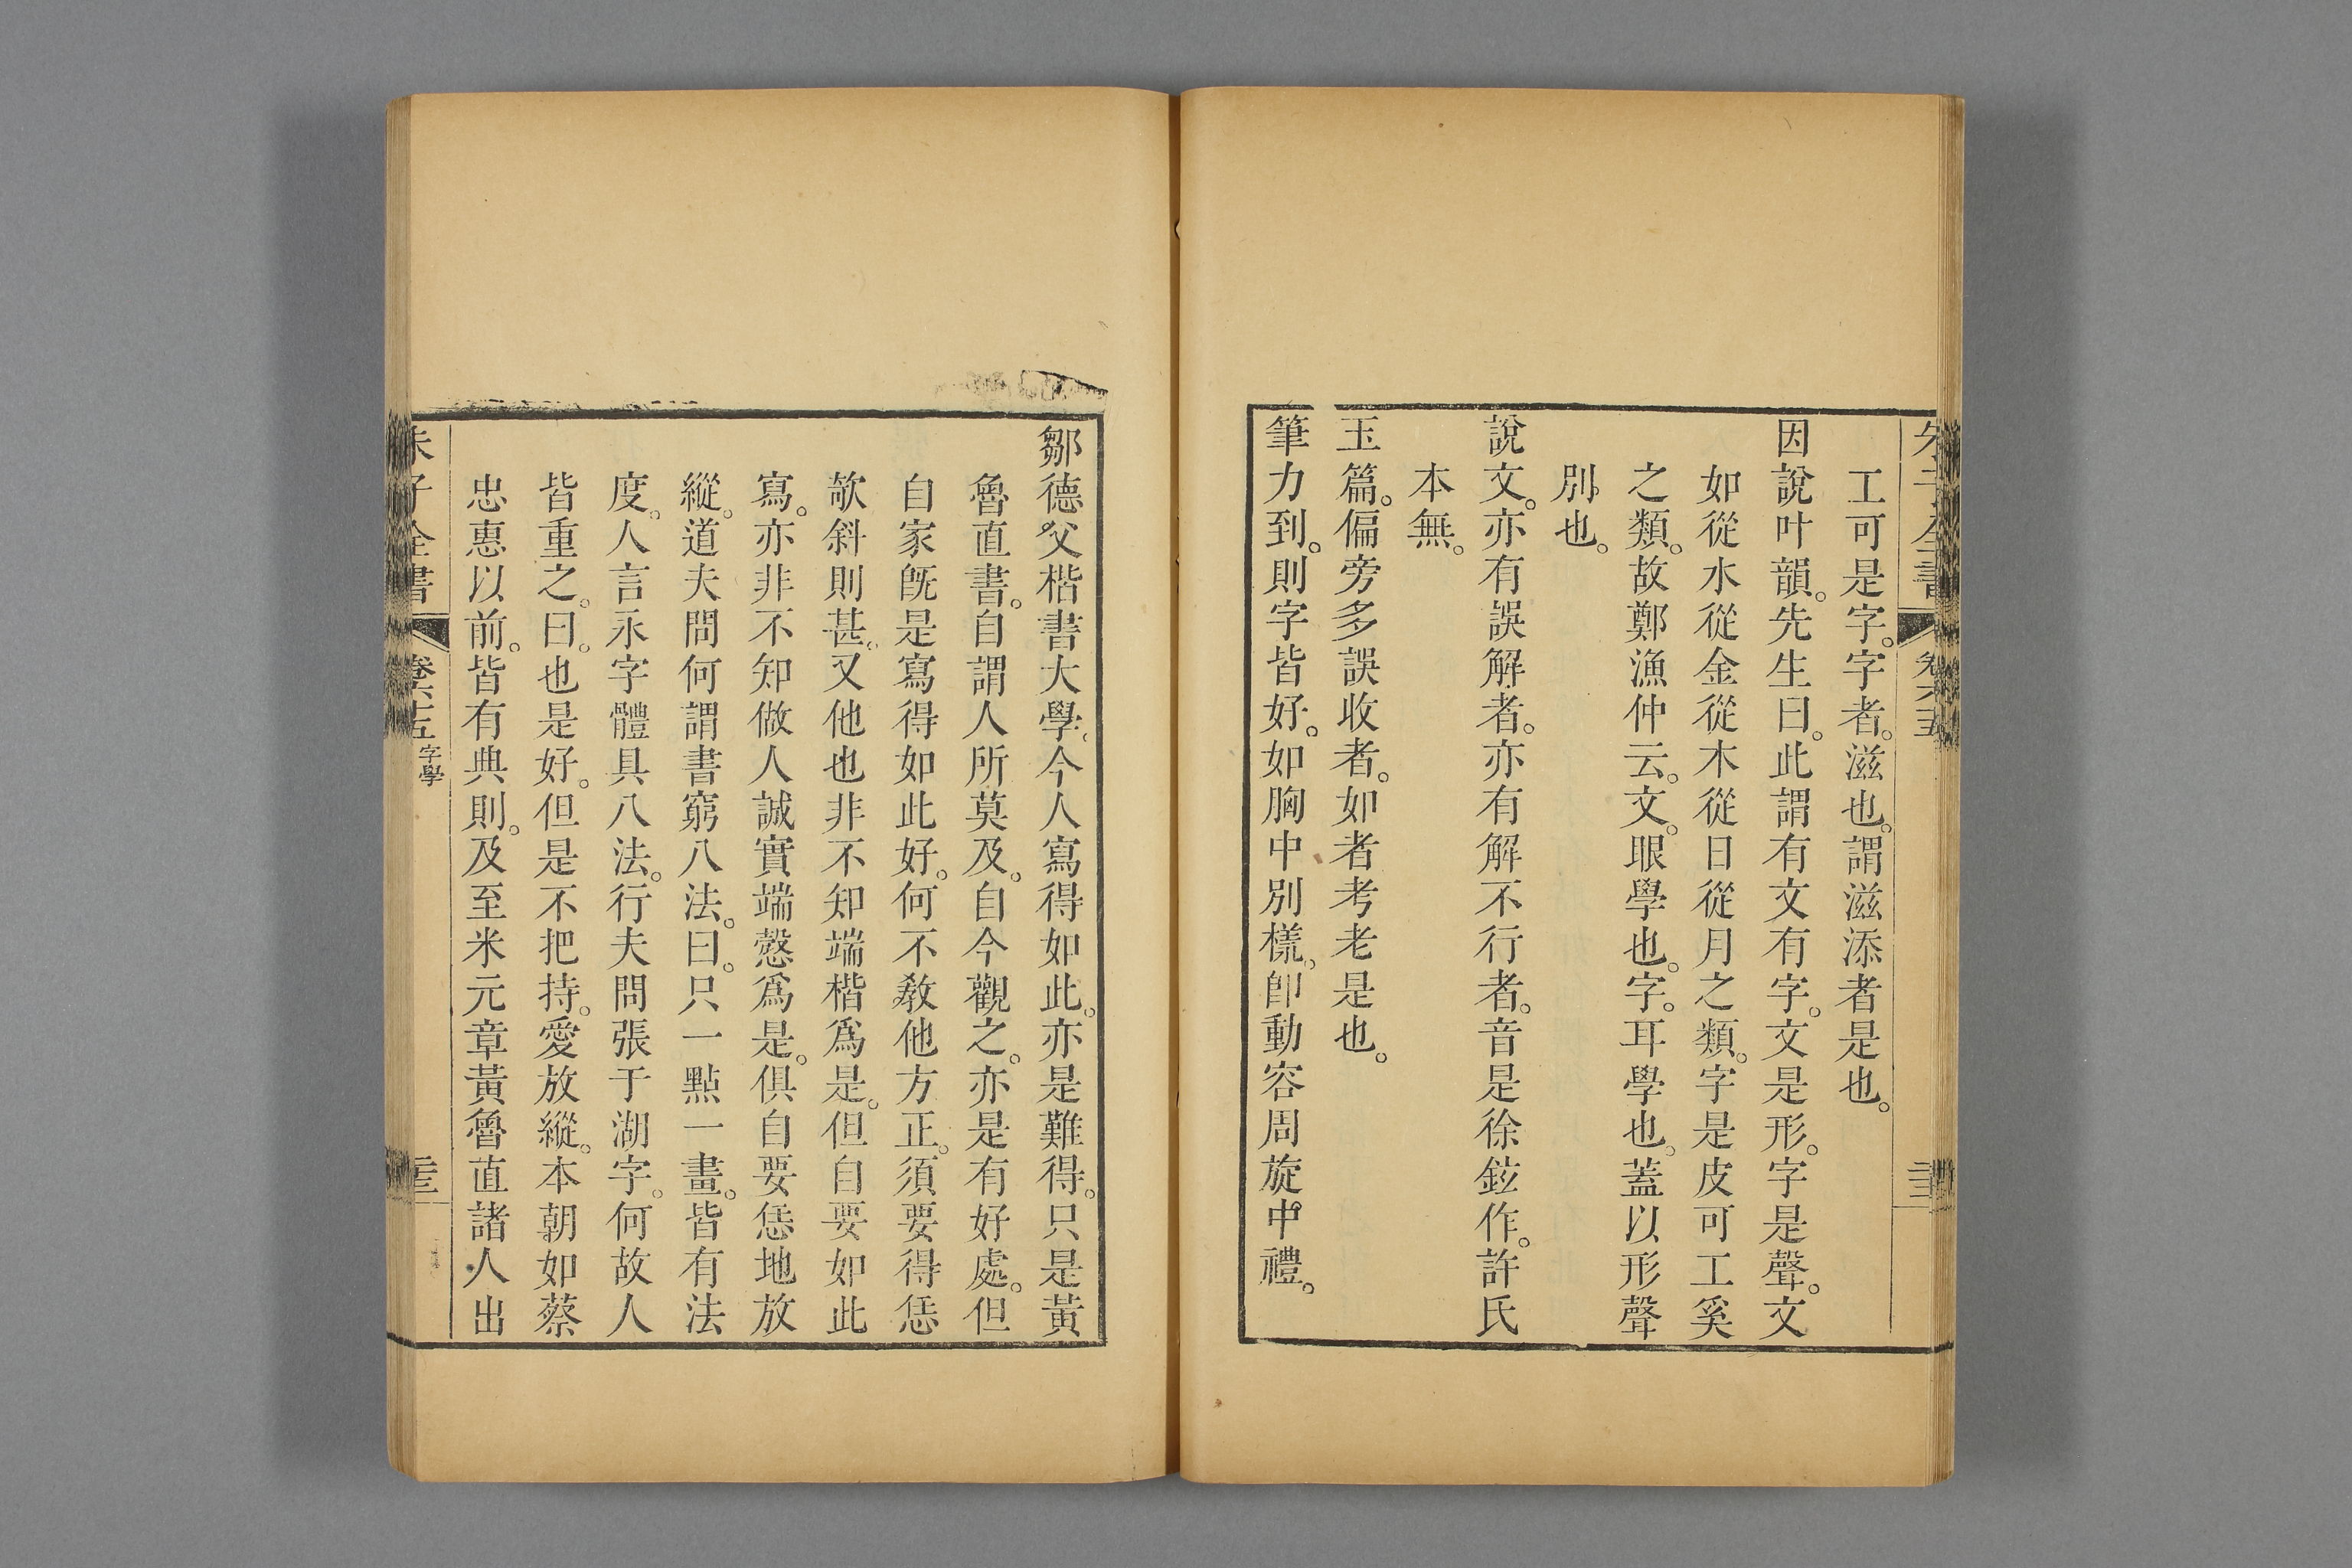 工可是字。字者。滋也。謂滋添者是也。
因說叶韻。先生曰。此謂有文有字。文是形。字是聲。文
如從水從金從木從日從月之類。字是皮可工奚
之類。故鄭漁仲云。文。眼學也。字。耳學也。蓋以形聲
別也。
說文。亦有誤解者。亦有解不行者。音是徐鉉作。許氏
本無。
玉篇。偏旁多誤收者。如者考老是也。
筆力到。則字皆好。如胸中別樣。卽動容周旋中禮。
鄒德父楷書大學。今人寫得如此。亦是難得。只是黃
魯直書。自謂人所莫及。自今觀之。亦是有好處。但
自家旣是寫得如此好。何不教他方正。須要得恁
欹斜則甚。又他也非不知端楷爲是。但自要如此
寫。亦非不知做人誠實端愨爲是。俱自要恁地放
縱。道夫問何謂書窮八法。曰。只一點一畫。皆有法
度。人言永字體具八法。行夫問張于湖字。何故人
皆重之。曰。也是好。但是不把持。愛放縱。本朝如蔡
忠惠以前。皆有典則。及至米元章黃魯直諸人出
朱子全書
卷六十五
字學